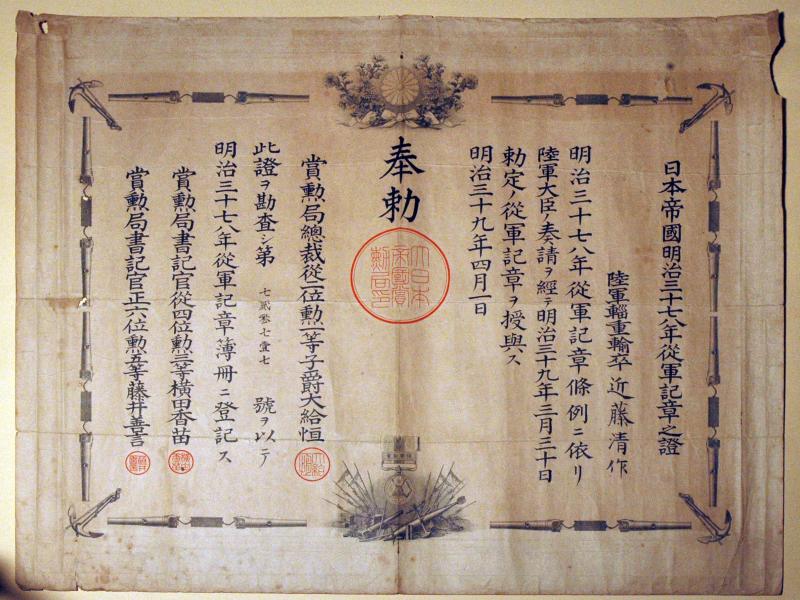 日本帝國明治三十七八年從軍記章之證
陸軍輜重輸卒 近藤清作
明治三十七八年從軍記章條例ニ依リ
陸軍大臣ノ奏請ヲ經テ明治三十九年三月三十日
勅定ノ從軍記章ヲ授與ス
明治三十九年四月一日
奉勅
賞勲局總裁從二位勲一等子爵大給恒
此證ヲ勘査シ第七貳零七壹七號ヲ以テ
明治三十七八年從軍記章簿册ニ登記ス
賞勲局書記官從四位勲三等橫田香苗
賞勲局書記官正六位勲五等藤井善言